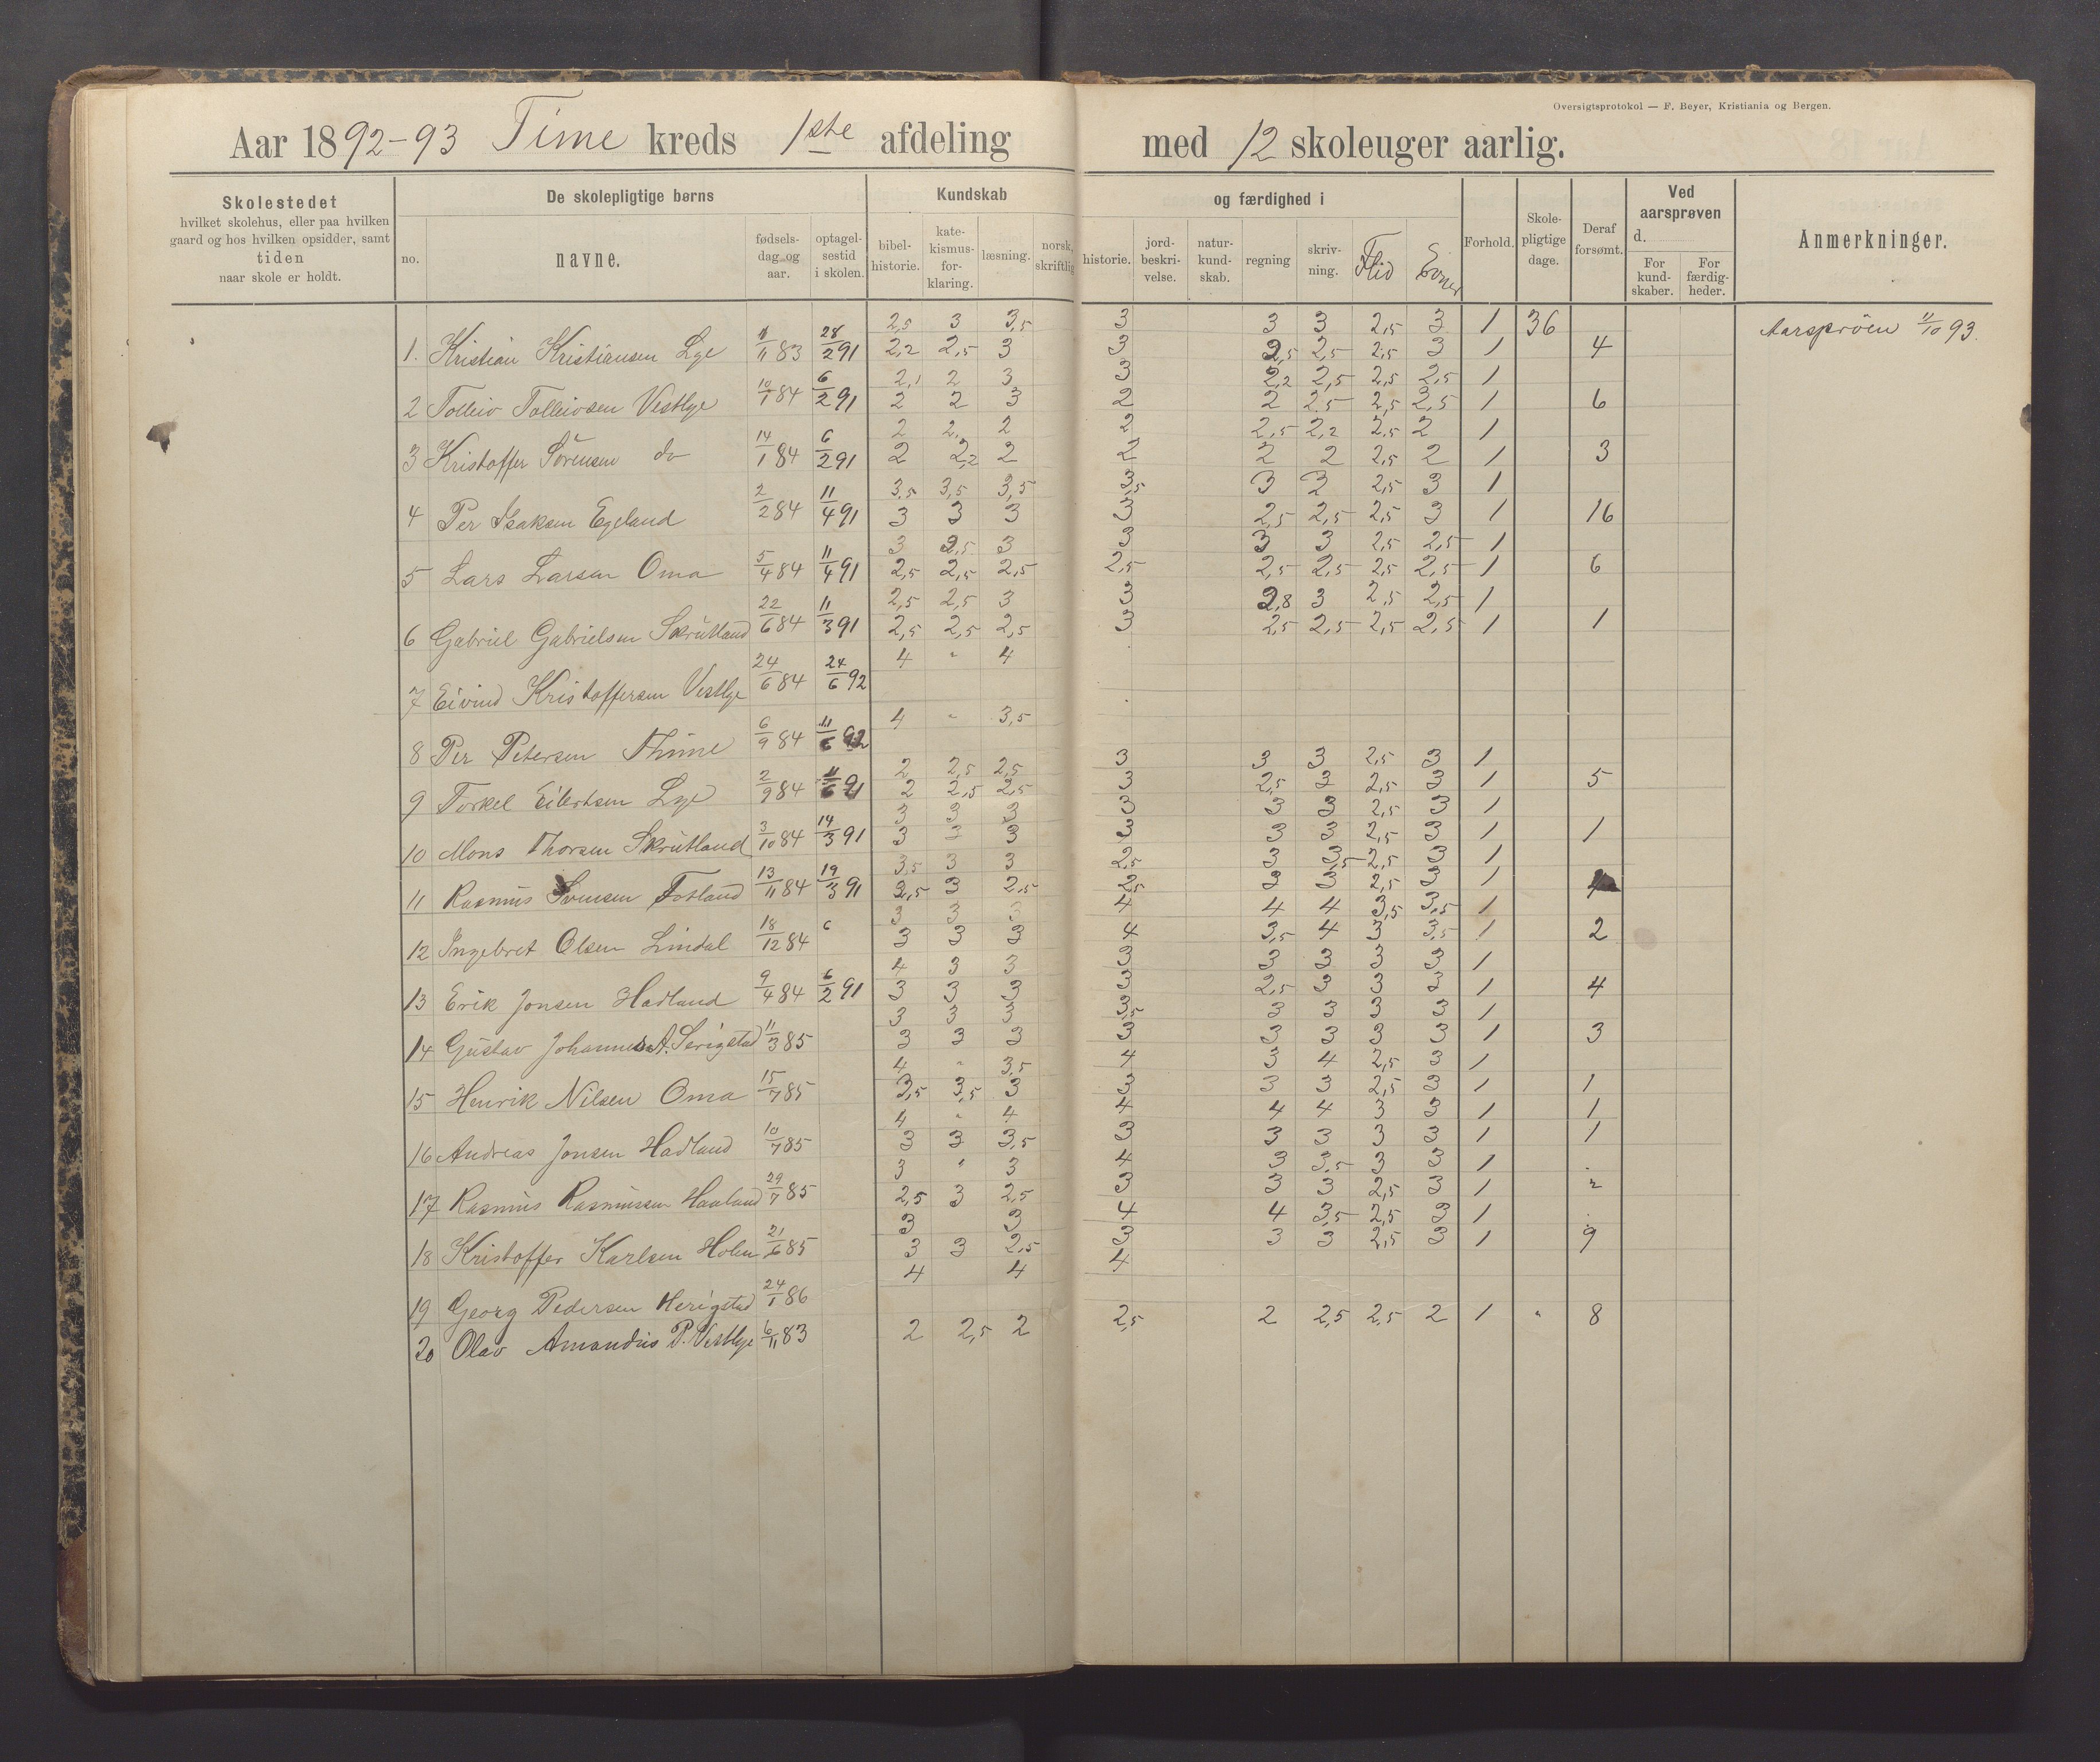 Oversigtsprotokol — F. Beyer, Kristiania og Bergen.
Aar 1892-93 Time kreds 1ste afdeling med 12 skoleuger aarlig.
Skolestedet
hvilket skolehus, eller paa hvilken
gaard og hos hvilken opsidder, samt
tiden
naar skole er holdt.
De skolepligtige børns
no.
navne.
fødsels-
dag og
aar.
optagel-
sestid
i skolen.
Kundskab og færdighed i
bibel-
historie.
kate-
kismus-
for-
klaring.
læsning.
norsk,
skriftlig
historie.
jord-
beskri-
velse.
natur-
kund-
skab.
regning
skriv-
ning.
Flid
Evner
Forhold.
Skole-
pligtige
dage.
Deraf
forsømt.
Ved
aarsprøven
d.
For
kund-
skaber.
For
færdig-
heder.
Anmerkninger.
2,5 3 3,5 3 3 3 2,5 3 1 36 Aarspröven 11/10 93.
1. Kristian Kristiansen Lye 1/11 83 28/2 91 2,2 2,5 3 3 2,5 2,5 2,5 3 1 4
2,1 2 3 3 2,2 2,5 2,5 2,5 1
2 Tolleiv Tolleivsen Vestlye 10/1 84 6/2 91 2 2 3 2 2 2,5 2,5 2,5 1 6
2 2, 2 2 2,5 2,2 2,5 2 1
3 Kristoffer Sörensen do 14/1 84 6/2 91 2 2,2 2 2 2 2 2,5 2 1 3
3,5 3,5 3,5 3,5 3 3 2,5 3 1
4 Per Isaksen Egeland 2/2 84 11/4 91 3 3 3 3 2,5 2,5 2,5 3 1 16
3 2,5 3 3 3 3 2,5 2,5 1
5 Lars Larsen Oma 5/4 84 11/4 91 2,5 2,5 2,5 2,5 2,5 2,5 2,5 2,5 1 6
2,5 2,5 3 3 2,8 3 2,5 2,5 1
6 Gabriel Gabrielsen Skrutland 22/6 84 11/3 91 2,5 2,5 2,5 3 2,5 2,5 2,5 2,5 1 1
4 " 4
7 Eivind Kristoffersen Vestlye 24/6 84 24/6 92
4 " 3,5
8 Per Petersen Thime 6/9 84 11/6 92
2 2,5 2,5 3 3 3 2,5 3 1
9 Torkel Eilertsen Lye 2/9 84 11/6 91 2 2,5 2,5 3 2,5 3 2,5 3 1 5
3 3 3 3 3 3 2,5 3 1
10 Mons Thorsen Skrutland 3/10 84 14/3 91 3 3 3 3 3 3 2,5 3 1 1
3,5 3 3 2,5 3 3,5 2,5 3 1
11 Rasmus Svensen Fosland 13/11 84 19/3 91 2,5 3 2,5 2,5 3 3 2,5 3 1
3 3 3 4 4 4 3,5 3,5 1
12 Ingebret Olsen Lindal 18/12 84 6 3 3 3 4 3,5 4 3 3,5 1 2
4 3 3 3 3 3 3 3 1
13 Erik Jonsen Hadland 9/4 84 6/2 91 3 3 3 3 2,5 3 3 3 1 4
3 3 3 3,5 3 3 3 3 1
14 Gustav Johannes A. Serigstad 11/3 85 3 3 3 3 3 3 3 3 1 3
4 " 3,5 4 3 4 2,5 3 1
15 Henrik Nilsen Oma 15/7 85 3,5 3,5 3 3 3 3 2,5 3 1 1
4 " 4 4 4 4 3 3 1 1
16 Andreas Jonsen Hadland 10/7 85 3 3 3,5 3 3 3 3 3 1 1
3 " 3 4 3 3,5 3 3 1 .
17 Rasmus Rasmussen Haaland 29/7 85 2,5 3 2,5 3 3 3 2,5 3 1 2
3 3 4 4 3,5 2,5 3 1 .
18 Kristoffer Karlsen Holen 21/6 85 3 3 2,5 3 3 3 2,5 3 1 9
4 4 4
19 Georg Pedersen Herigstad 24/1 86
20 Olav Amandus P. Vestlye 6/11 83 2 2,5 2 2,5 2 2,5 2,5 2 1 " 8